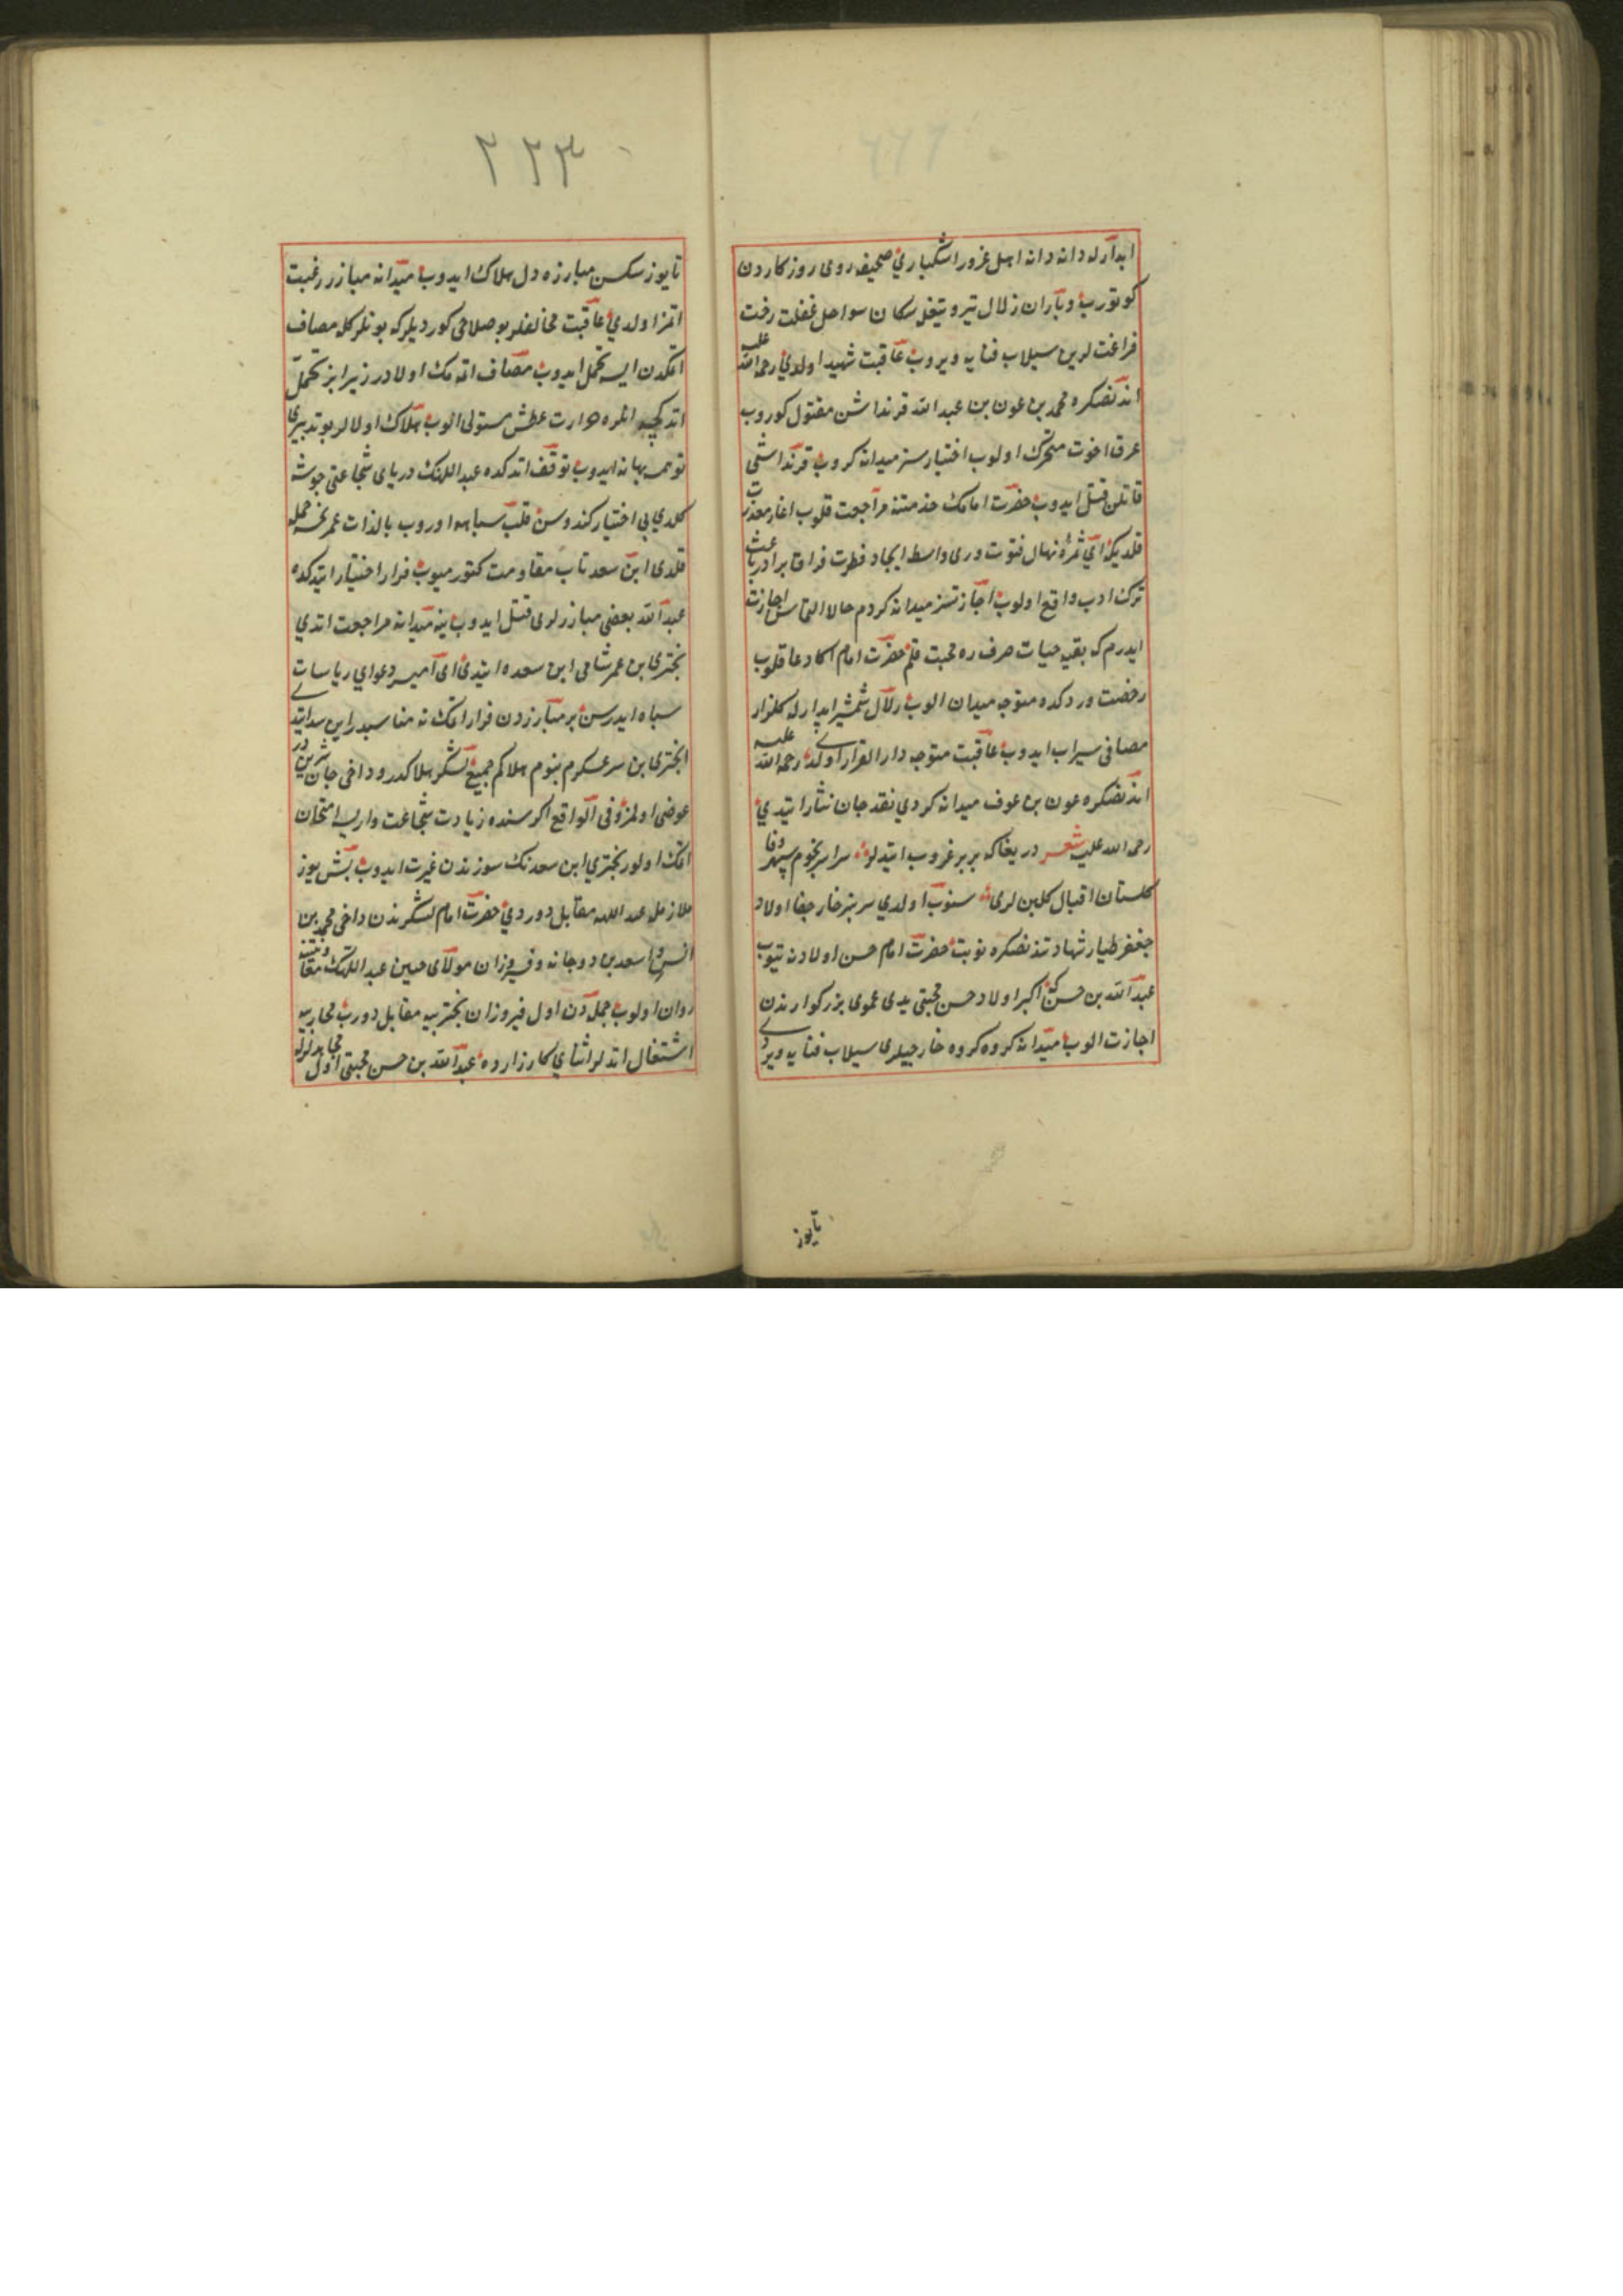 ابدارله دانه دانه اهل غرور اشكباري صحيفه روى روزكاردن
كوتورب وباران زلال تير وتيغله سكان سواحل غفلت رخت
فراغت لرين سيلاب فنايه ويروب عاقبت شهيد اولدي رحمة الله عليه
اندنصكره محمد بن عون بن عبد الله قرنداشن مقتول كوروب
عرق اخوت متحرك اولوب اختيارسز ميدانه كروب قرنداشى
قاتلن قتل ايدوب حضرت امامك خدمتنه مراجعت قلوب اغاز معذرت
قلديكه اي ثمرۀ نهال فتوت ودرى واسطه ايجاد فطرت فراق برادر باعث
ترك ادب واقع اولوب اجازتسز ميدانه كردم حالا التماس اجازت
ايدرم كه بقيه حيات صرف ره محبت قلم حضرت امام اكا دعا قلوب
رخصت ورد كده متوجه ميدان الوب زلال شمشير ابدارله كلزار
مصافى سيراب ايدوب عاقبت متوجه دار القرار اولدى رحمة الله عليه
اندنصكره عون بن عوف ميدانه كردي نقد جان نثار ايتدي
رحمة الله عليه شعر دريغا كه بربر غروب ايتديلر سراسر نجوم سپهر وفا
كلستان اقبال كلبن لرى سنوب اولدي سربسر خار جفا اولاد
جعفر طيار شهادتندنصكره نوبت حضرت امام حسن اولادنه يتوب
عبد الله بن حسن كه اكبر اولاد حسن مجتبى يدى عموى بزركوارندن
اجازت الوب ميدانه كروه كروه خارجيلرى سيلاب فنايه ويردى
تايوز
٢٢٣
تايوز سكسن مبارزه دل هلاك ايدوب ميدانه مبازر رغبت
اتمز اولدي عاقبت مخالفلر بو صلاحى كورديلر كه بونلر كله مصاف
اتمكدن ايسه تحمل ايدوب مصاف اتمه مك اولادر زيرا بز تحمل
اتد كجه انلره حرارت عطش مستولى الوب هلاك اولالر بو تدبيرى
توهمه بهانه ايدوب توقف اتدكده عبد اللهك درياى شجاعتى جوشه
كلدي بى اختيار كندوسن قلب سپاهه اوروب بالذات عمر نحسه حمله
قلدى ابن سعد تاب مقاومت كتورميوب فرار اختيار ايتدكده
عبد الله بعضى مبازرلرى قتل ايدوب ينه ميدانه مراجعت اتدي
بختري بن عمر شامى ابن سعده ايتدى اى امير دعواي رياسات
سپاه ايدرسن بر مبارزدن فرار اتمك نه مناسبدر ابن سعد ايتدى
ابخترى بن سر عسكرم بنوم هلاكم جميع لشكر هلاكدر وداخى جان شريندر
عوضى اولمز فى الواقع اكر سنده زيادت شجاعت واريسه امتحان
اتمك اولور بختري ابن سعدنك سوزندن غيرت ايدوب بش يوز
ملازمله عبد الله مقابل دوردي حضرت امام لشكرندن داخى محمد بن
انس واسعد بن دوجانه وفيروزان مولاى حسين عبد اللهك معاونتنه
روان اولوب جمله دن اول فيروزان بختريه مقابل دورب محاربه
اشتغال اتدلر اثناي كارزارده عبد الله بن حسن مجتبى اول مجاهدلرله